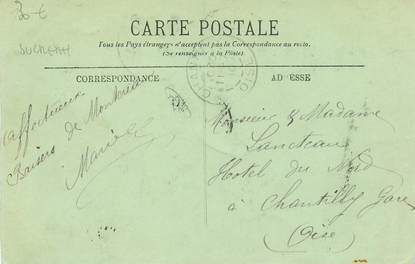 30 €
CARTE POSTALE
Tous les Pays étrangers n'acceptent pas la Correspondance au recto.
(Se renseigner à la Poste)
CORRESPONDANCE
Affectueux
Baisers de Montreuil
Marie
ADRESSE
Monsieur & Madame
Lancteau
Hotel du Nord
à Chantilly Gare
(Oise)